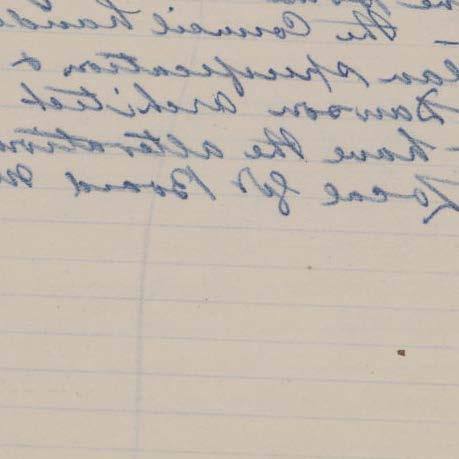 the Council
specification &
Dawson Architect
have the alteration
Local Gt Board